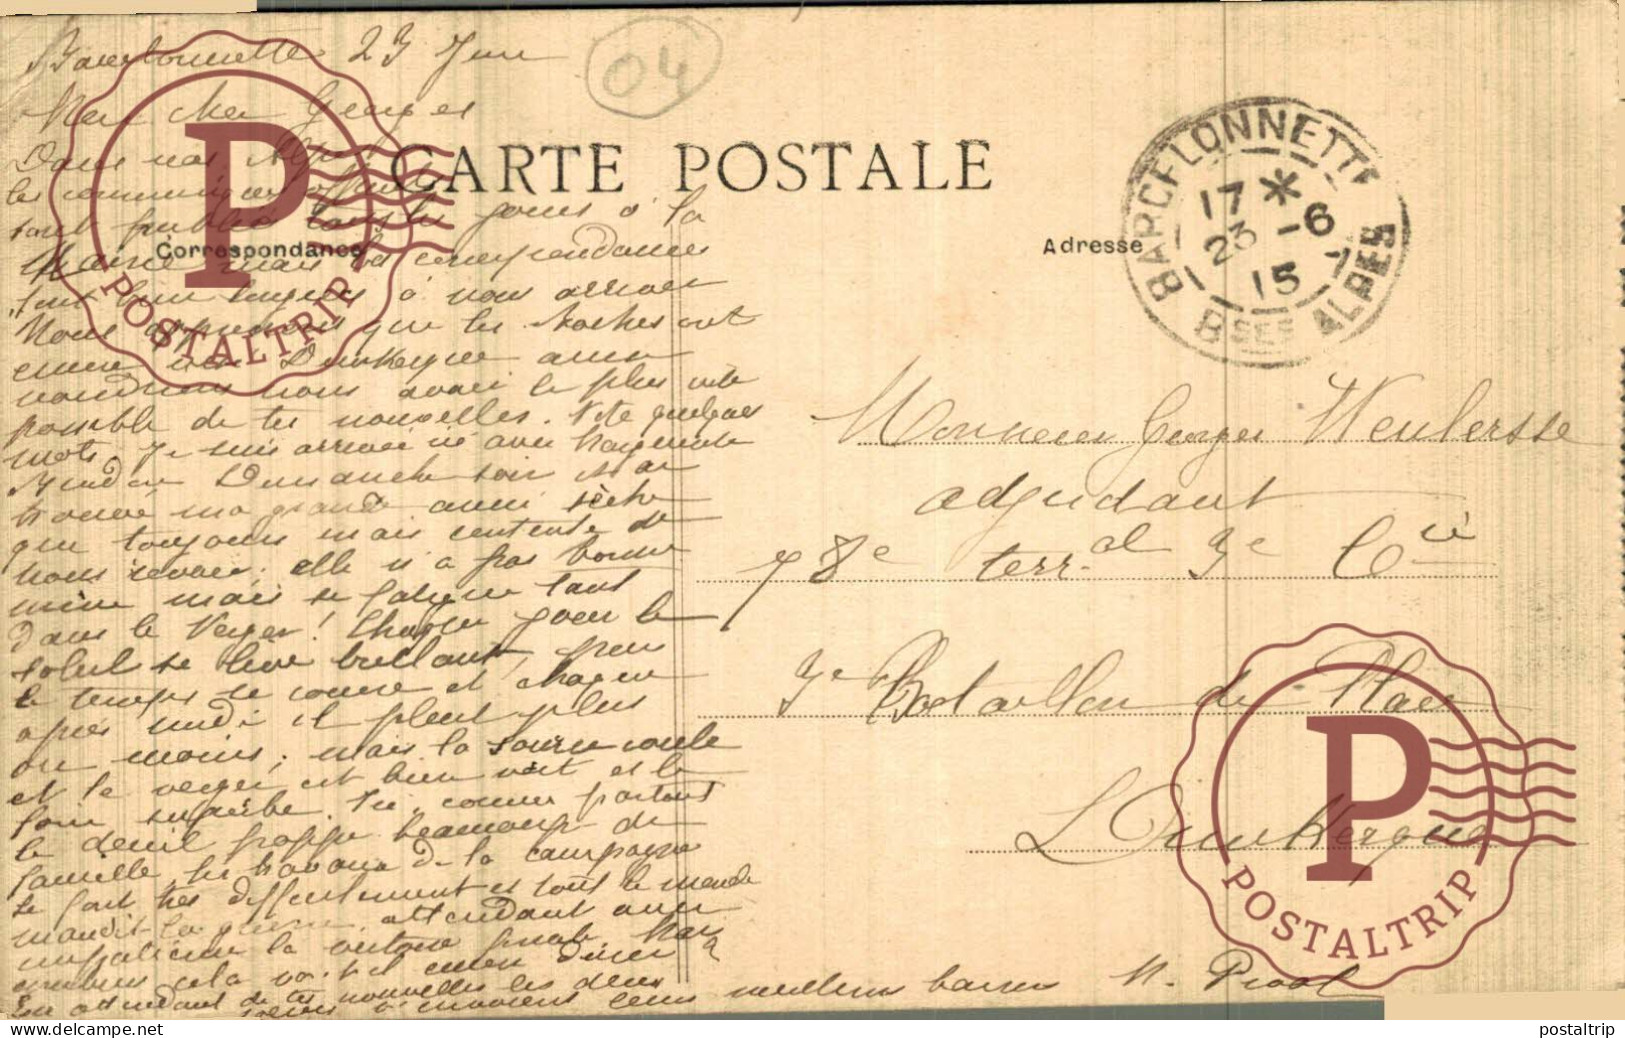 Barcelonnette 23 Juin
04
Mon cher Georges
Dans nos Alpes
CARTE POSTALE
les communiqués officiels
sont publiés tous les jours à la
Correspondance
Adresse
Mairie mais les correspondances
sont bien longues à nous arriver
Nous apprenons que les Boches ont
encore Dunkerque aussi
voudrions nous avoir le plus vite
possible de tes nouvelles. Vite quelques
mots. Je suis arrivée ici avec
Dimanche soir
trouvé ma grande aussi sèche
que toujours mais contente de
nous revoir; elle n'a pas bonne
mine mais se fatigue tant
dans le Verger! Chaque jour le
soleil se lève brillant, puis
le temps se couvre et chaque
après midi il pleut plus
ou moins; mais la source coule
et le verger est bien vert et le
foin superbe. Ici, comme partout
le deuil frappe beaucoup de
famille, les travaux de la campagne
se font très difficilement et tout le monde
maudit la guerre, attendant avec
impatience la victoire finale.
combien cela va-t-il encore durer?
En attendant de tes nouvelles les deux
meilleurs baisers
BARCELONNETTE
17 *
23 - 6
15
BSES ALPES
Monsieur Georges Weulersse
adjudant
78e terr.al 3e Cie
3e Bataillon de Place
Dunkerque
P
POSTALTRIP
P
POSTALTRIP
postaltrip
postaltrip